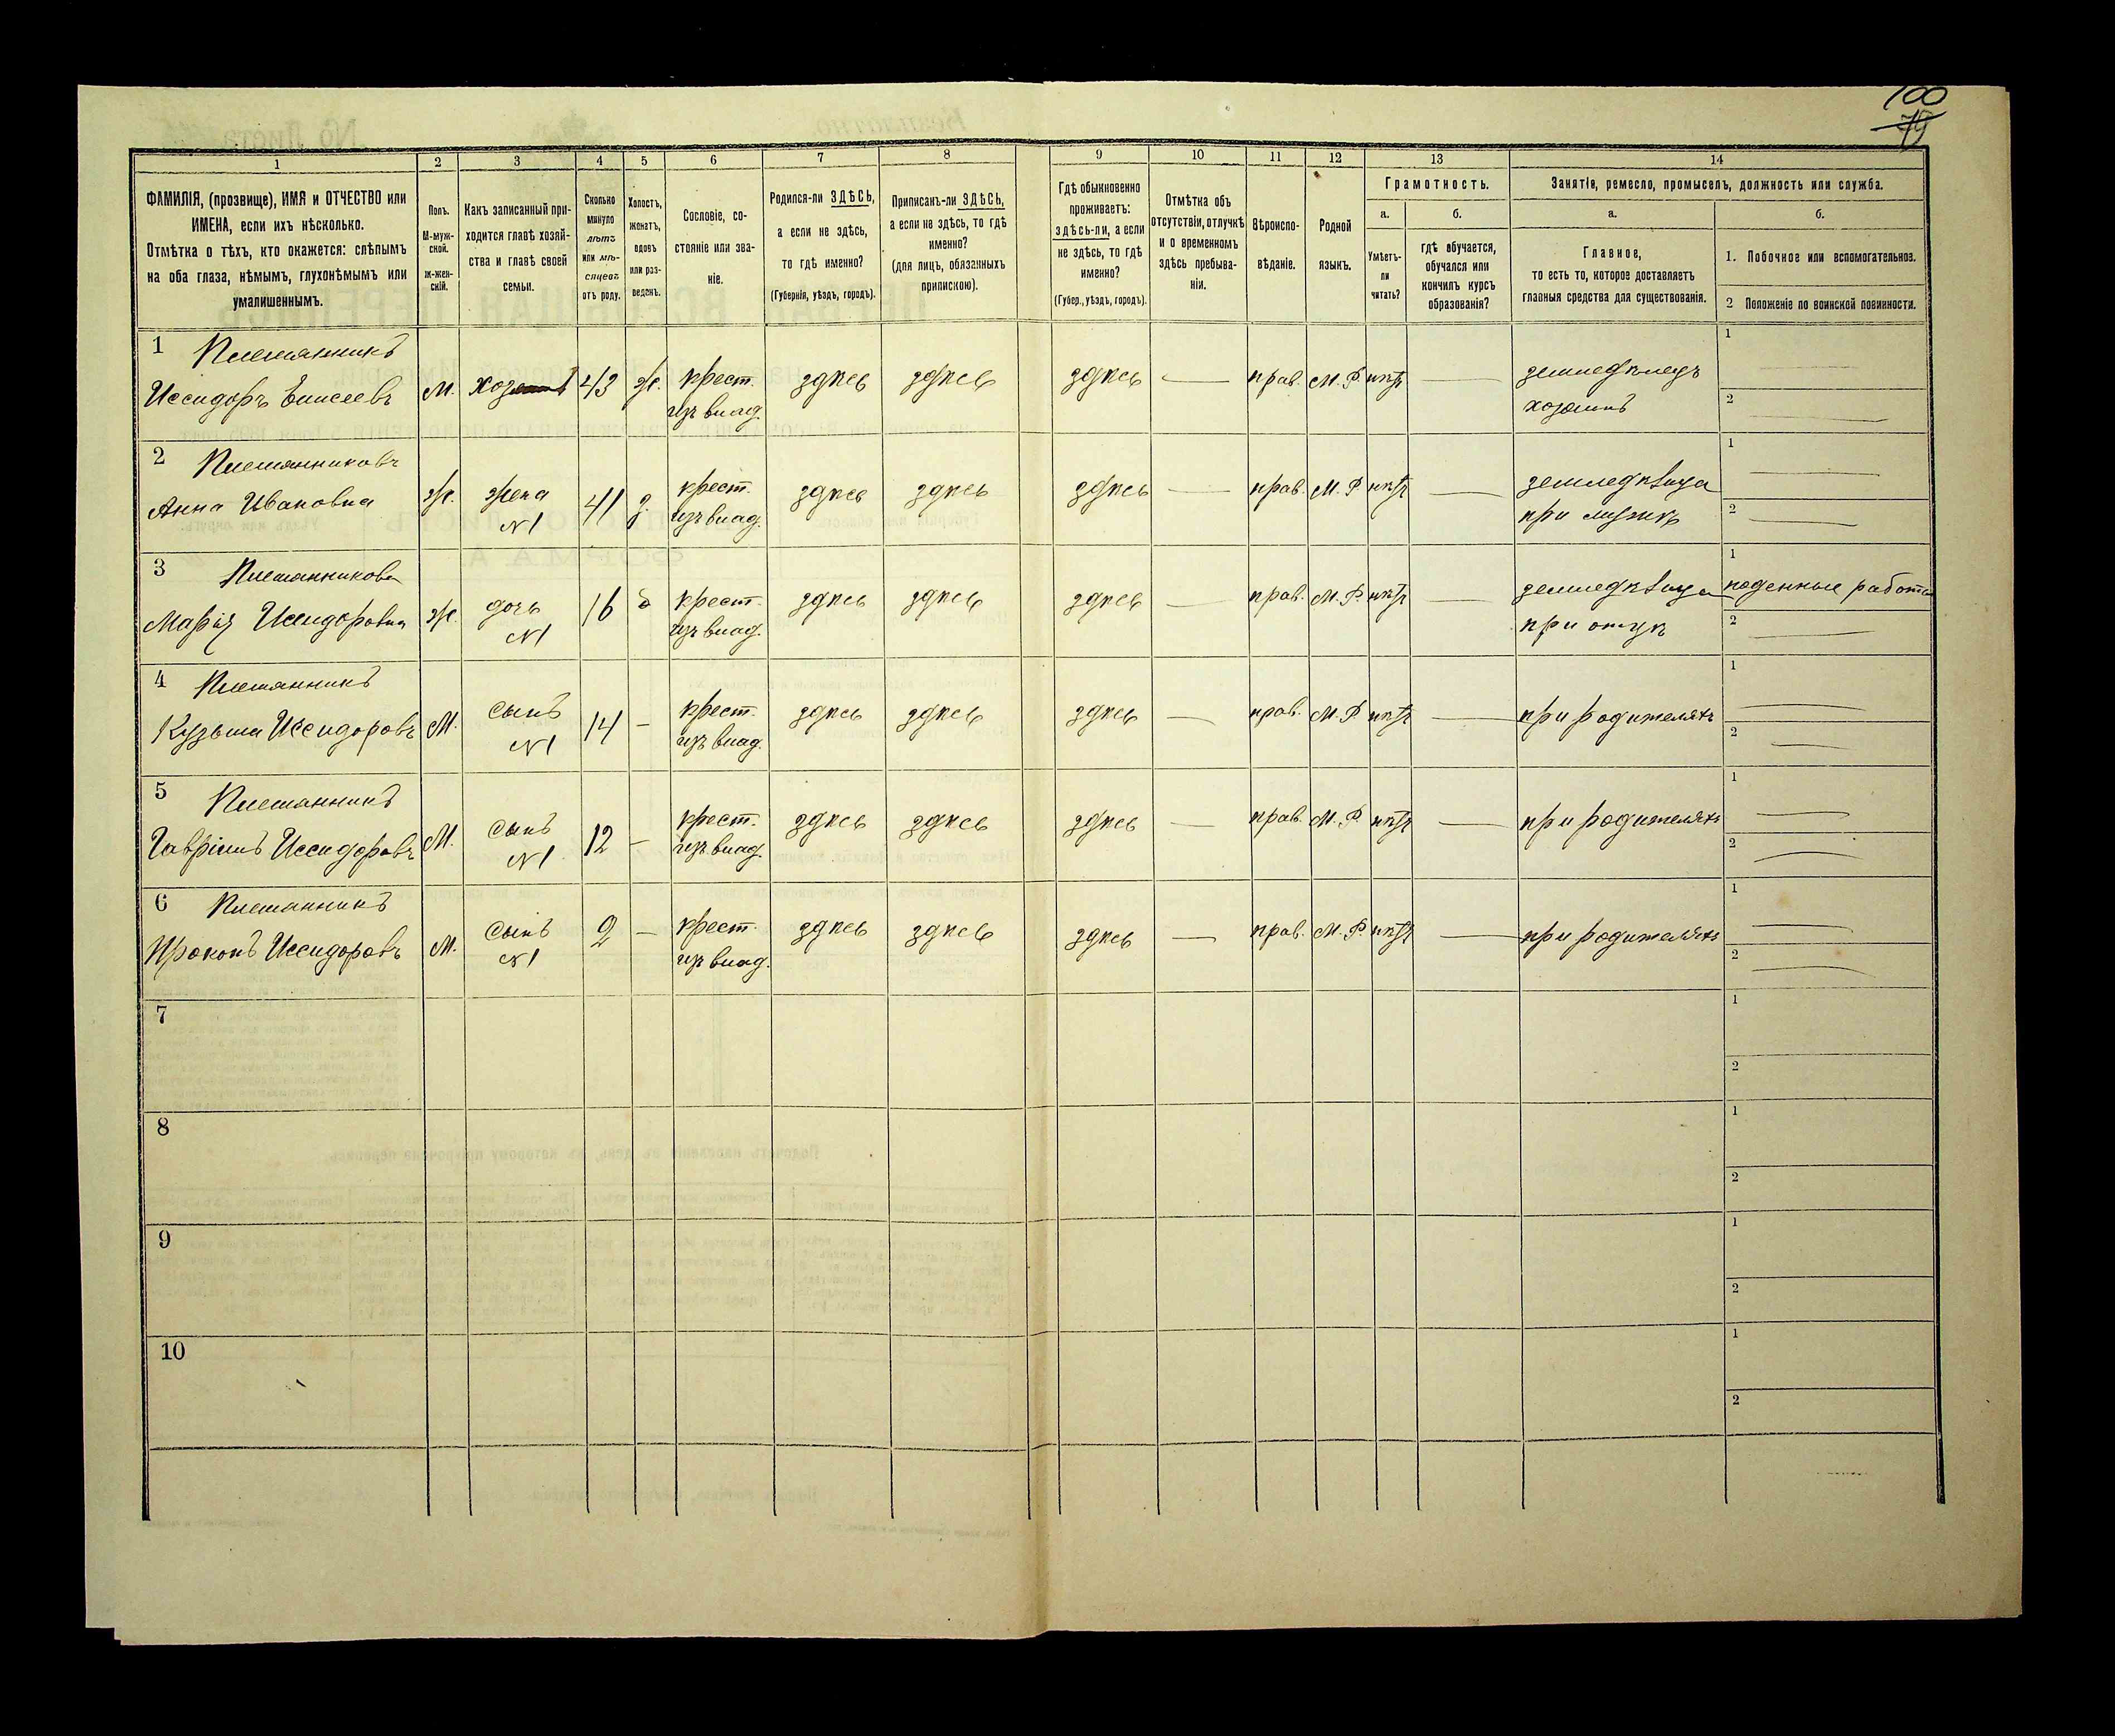 100
79
1
2
3
4
5
6
7
8
9
10
11
12
13
14
ФАМИЛІЯ, (прозвище), ИМЯ и ОТЧЕСТВО или
ИМЕНА, если ихъ нѣсколько.
Отмѣтка о тѣхъ, кто окажется: слѣпымъ
на оба глаза, нѣмымъ, глухонѣмымъ или
умалишеннымъ.
Полъ.
М-муж-
ской.
ж-жен-
скій.
Какъ записанный при-
ходится главѣ хозяй-
ства и главѣ своей
семьи.
Сколько
минуло
лѣтъ
или мѣ-
сяцевъ
отъ роду.
Холостъ,
женатъ,
вдовъ
или раз-
веденъ.
Сословіе, со-
стояніе или зва-
ніе.
Родился-ли ЗДѢСЬ,
а если не здѣсь,
то гдѣ именно?
(Губернія, уѣздъ, городъ).
Приписанъ-ли ЗДѢСЬ,
а если не здѣсь, то гдѣ
именно?
(для лицъ, обязанныхъ
припискою).
Гдѣ обыкновенно
проживаетъ:
здѣсь-ли, а если
не здѣсь, то гдѣ
именно?
(Губер., уѣздъ, городъ).
Отмѣтка объ
отсутствіи, отлучкѣ
и о временномъ
здѣсь пребыва-
ніи.
Вѣроиспо-
вѣданіе.
Родной
языкъ.
Грамотность.
а.
Умѣетъ-
ли
читать?
б.
гдѣ обучается,
обучался или
кончилъ курсъ
образованія?
Занятіе, ремесло, промыселъ, должность или служба.
а.
Главное,
то есть то, которое доставляетъ
главныя средства для существованія.
б.
1. Побочное или вспомогательное.
2 Положеніе по воинской повинности.
1 Племянникъ
Исидоръ Елисеевъ
М. хоз 43 ж. крест.
изъ влад.
здѣсь здѣсь здѣсь — прав. М. Р. нѣтъ —
земледѣлецъ
хозяинъ
1
2
2 Племянниковъ
Анна Ивановна
ж. жена
N1
41 з. крест.
изъ влад.
здѣсь здѣсь здѣсь — прав. М. Р нѣтъ —
земледѣлица
при мужѣ
1
2
3 Племянникова
Марія Исидоровна
ж. дочь
N1
16 крест.
изъ влад.
здѣсь здѣсь здѣсь — прав. М. Р. нѣтъ —
земледѣлица
при отцѣ
1 поденные работы
2
4 Племянникъ
Кузьма Исидоровъ
М. сынъ
N1
14 — крест.
изъ влад.
здѣсь здѣсь здѣсь — прав. М. Р нѣтъ —
при родителяхъ
1
2
5 Племянникъ
Гаврiилъ Исидоровъ
М. сынъ
N1
12 — крест.
изъ влад.
здѣсь здѣсь здѣсь — прав. М. Р нѣтъ —
при родителяхъ
1
2
6 Племянникъ
Прокопъ Исидоровъ
М. сынъ
N1
2 — крест.
изъ влад.
здѣсь здѣсь здѣсь — прав. М. Р. нѣтъ —
при родителяхъ
1
2
7
1
2
8
1
2
9
1
2
10
1
2